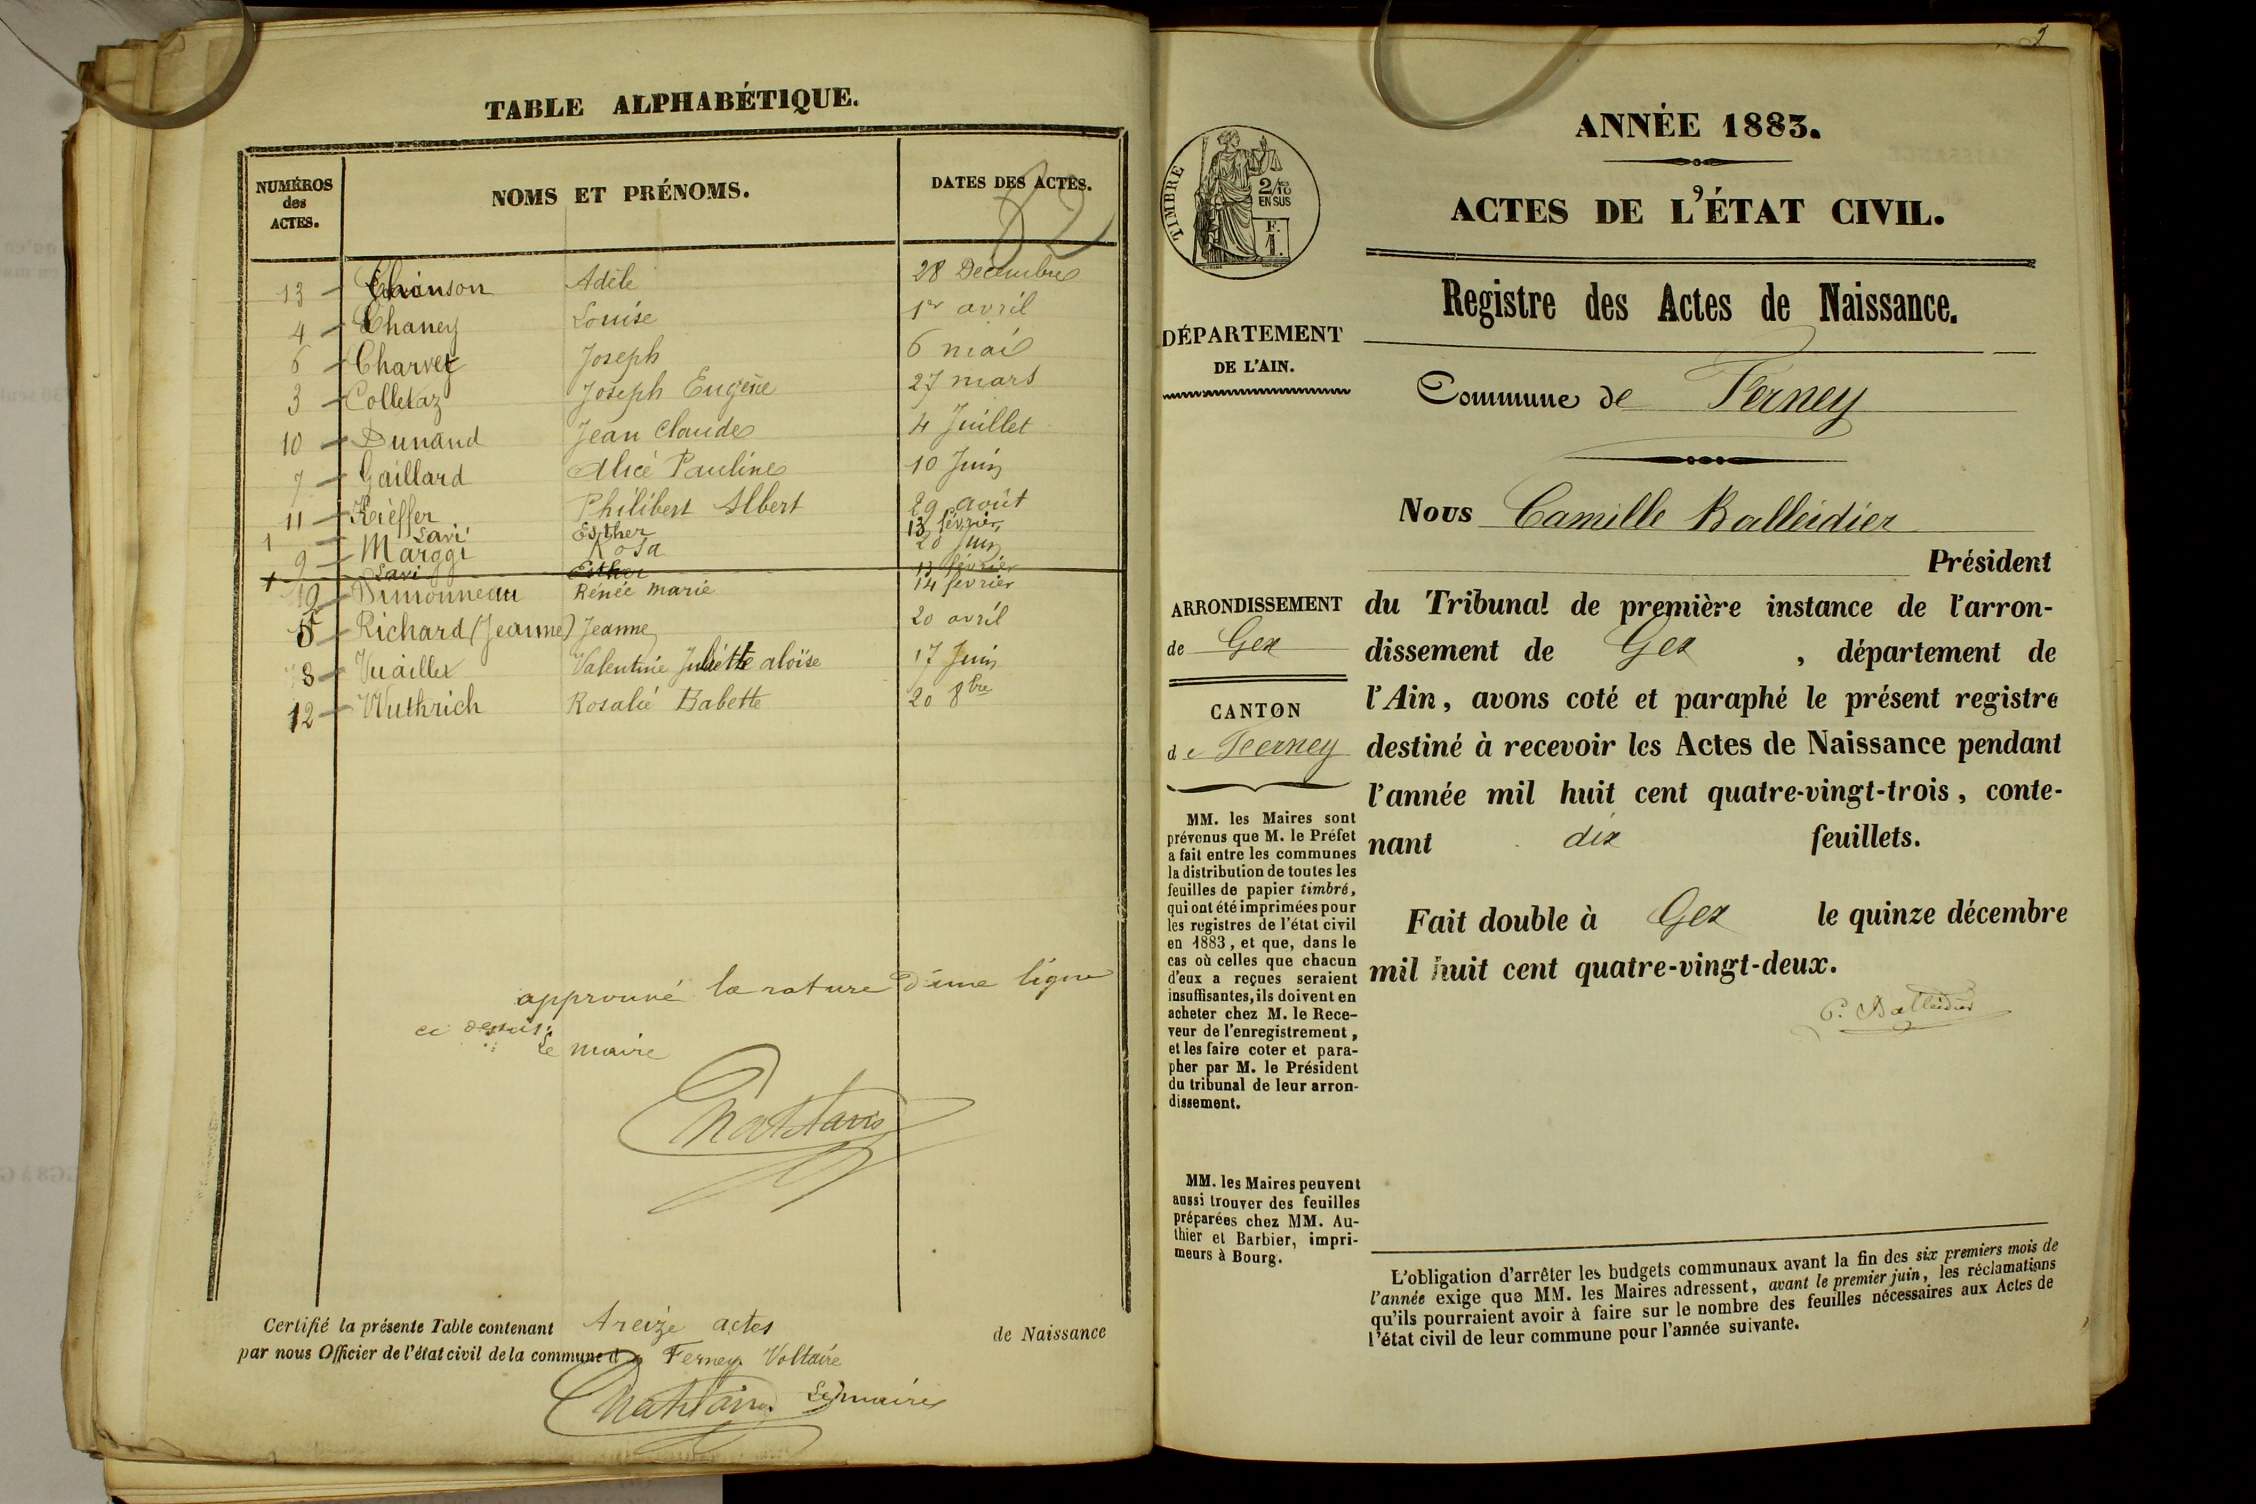 TABLE ALPHABÉTIQUE.
NUMÉROS des ACTES.
NOMS ET PRÉNOMS.
DATES DES ACTES.
82
13 Chanson Adèle 28 Decembre
4 Chaney Louise 1er avril
6 Charvet Joseph 6 mai
3 Colletaz Joseph Eugène 27 mars
10 Dunand Jean Claude 4 Juillet
7 Gaillard Alice Pauline 10 Juin
11 Kieffer Philibert Albert 29 août
1 Lavi Esther 13 février
9 Marggi Rosa 20 Juin
1 Lavi Esther 13 février
Dimonneau Rénée Marie 14 fevrier
5 Richard (Jeanne) Jeanne 20 avril
8 Vuaillet Valentine Juliette aloïse 17 Juin
12 Wuthrich Rosalie Babette 20 8bre
approuvé la rature d'une ligne
ci dessus.
Le maire
Certifié la présente Table contenant treize actes de Naissance
par nous Officier de l'état civil de la commune d Ferney Voltaire
Le maire
2
TIMBRE
2/10 EN SUS
F. 1.
ANNÉE 1883.
ACTES DE L'ÉTAT CIVIL.
Registre des Actes de Naissance.
DÉPARTEMENT
DE L'AIN.
Commune de Ferney
Nous Camille Balleidier
Président
ARRONDISSEMENT
de Gex
CANTON
de Ferney
du Tribunal de première instance de l'arron-
dissement de Gex, département de
l'Ain, avons coté et paraphé le présent registre
destiné à recevoir les Actes de Naissance pendant
l'année mil huit cent quatre-vingt-trois, conte-
nant dix feuillets.
Fait double à Gex le quinze décembre
mil huit cent quatre-vingt-deux.
C. Balleidier
MM. les Maires sont
prévenus que M. le Préfet
a fait entre les communes
la distribution de toutes les
feuilles de papier timbré,
qui ont été imprimées pour
les registres de l'état civil
en 1883, et que, dans le
cas où celles que chacun
d'eux a reçues seraient
insuffisantes, ils doivent en
acheter chez M. le Rece-
veur de l'enregistrement,
et les faire coter et para-
pher par M. le Président
du tribunal de leur arron-
dissement.
MM. les Maires peuvent
aussi trouver des feuilles
préparées chez MM. Au-
thier et Barbier, impri-
meurs à Bourg.
L'obligation d'arrêter les budgets communaux avant la fin des six premiers mois de
l'année exige que MM. les Maires adressent, avant le premier juin, les réclamations
qu'ils pourraient avoir à faire sur le nombre des feuilles nécessaires aux Actes de
l'état civil de leur commune pour l'année suivante.